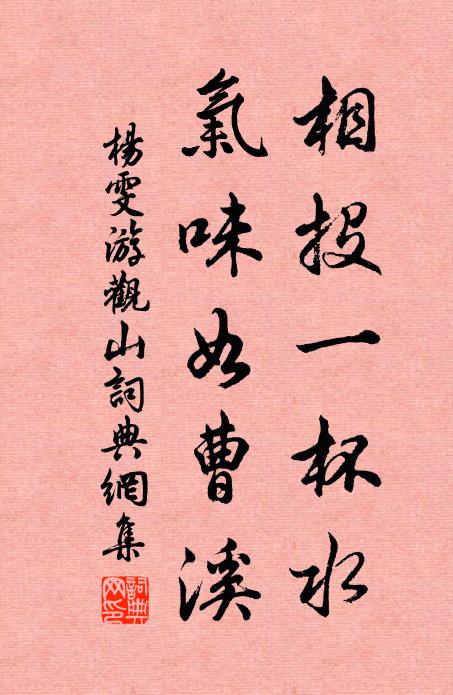 相投一杯水
氣味如曹溪
楊雯游觀山詞典網集
詞典網印